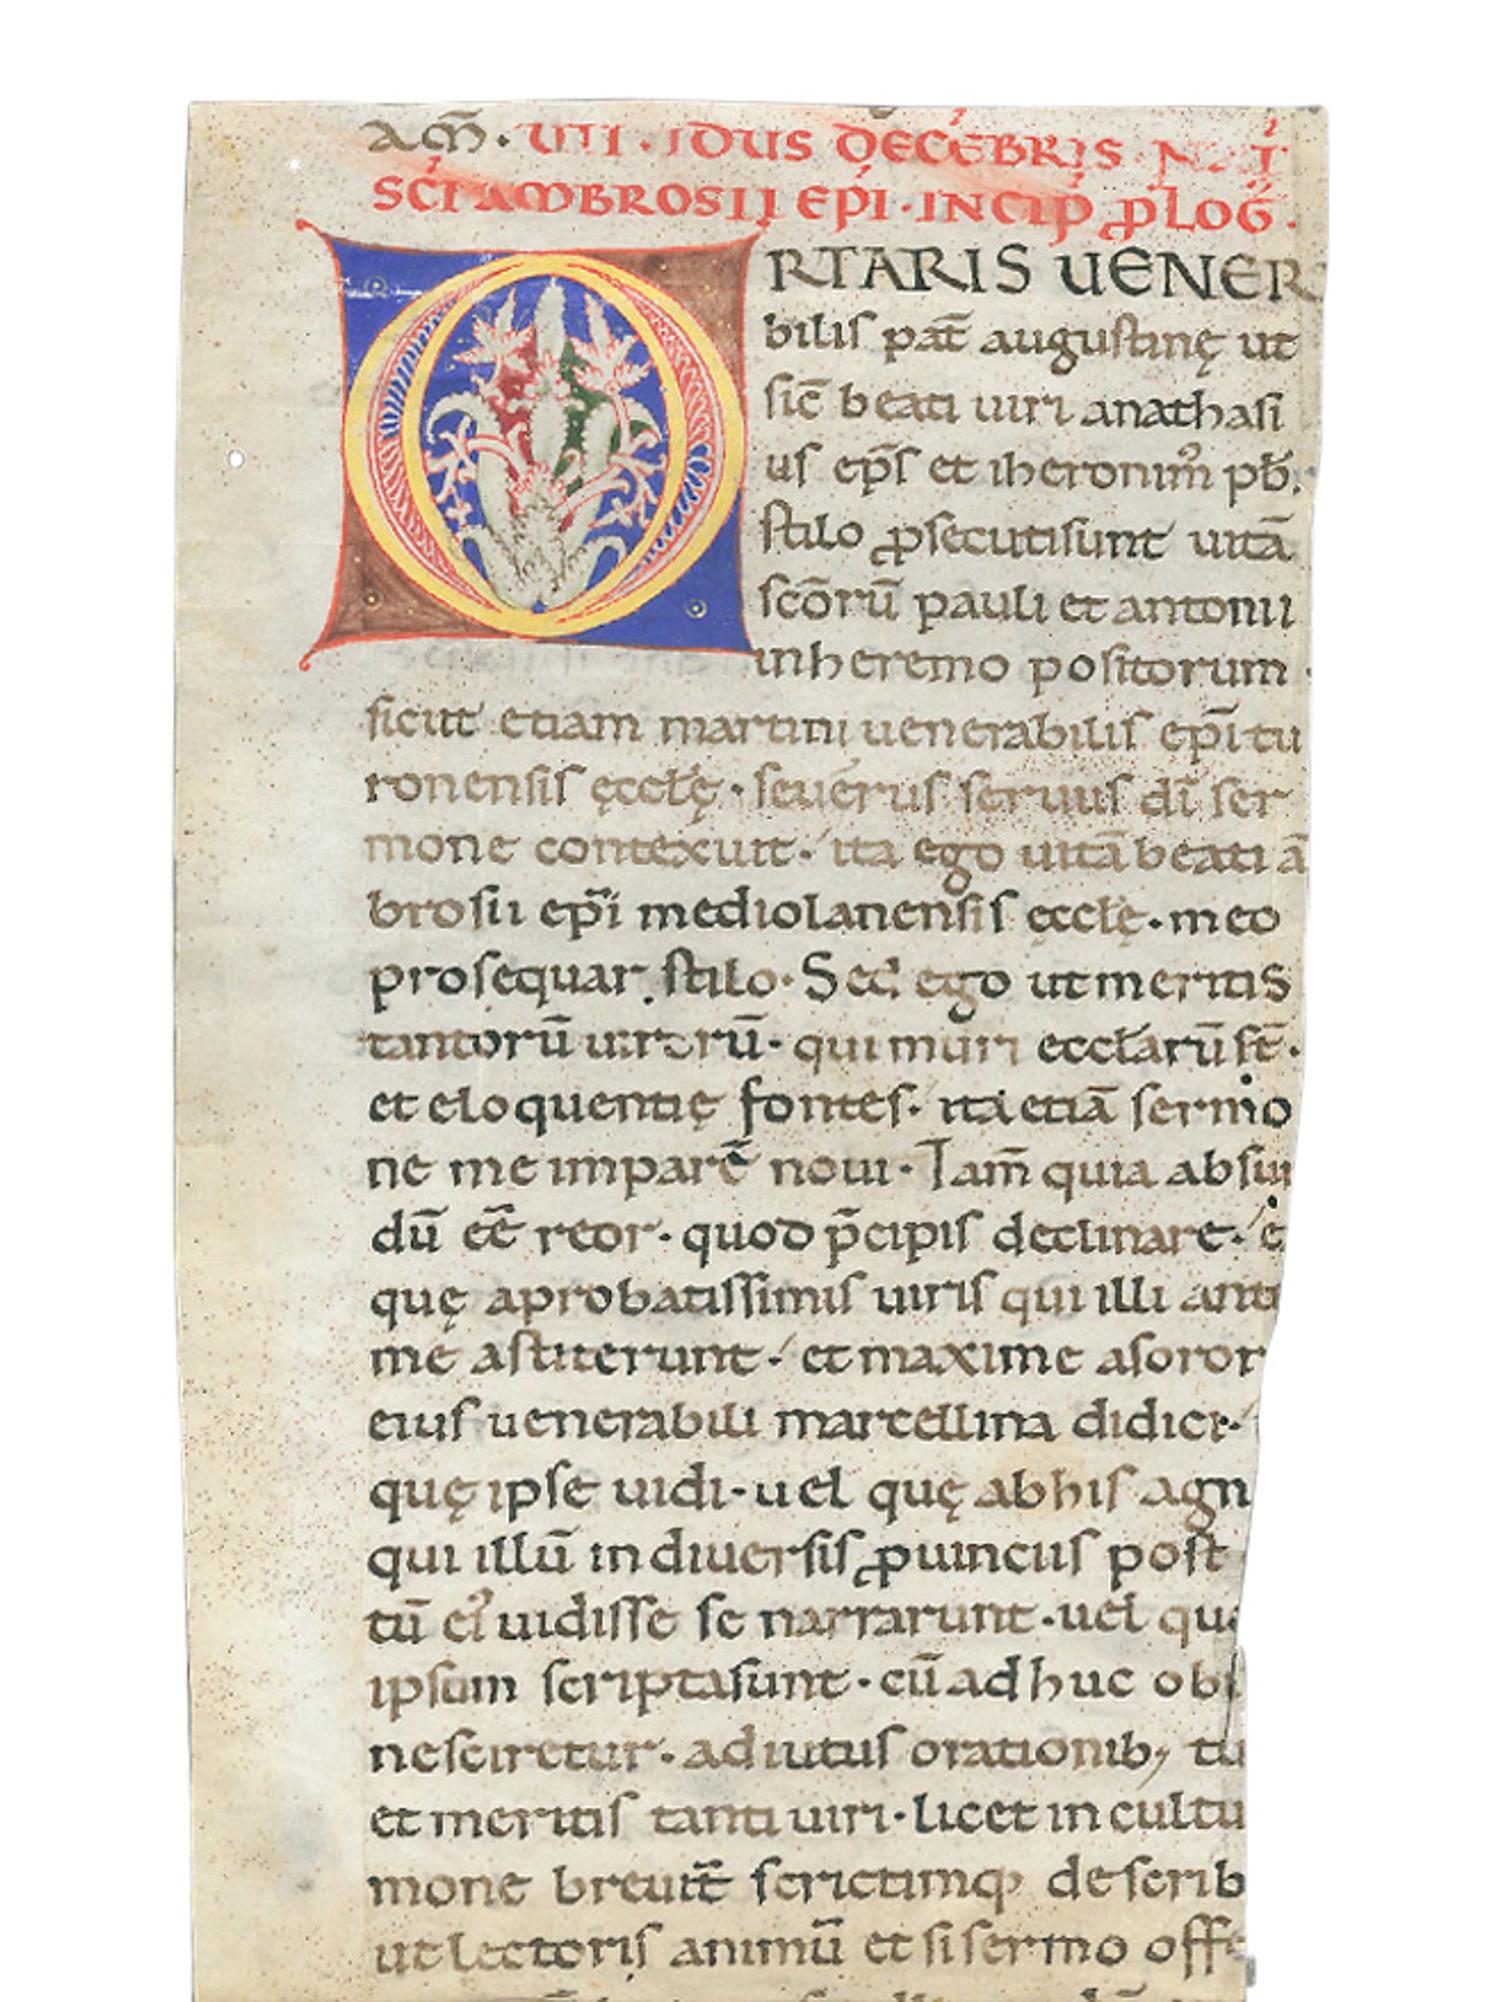 am̄. VII. IDUS DECĒBRIS. N. T̄
SC̄I AMBROSII EP̄I. INCIP̄ P̱LOḠ.
ORTARIS UENER
bilis pat̄ augustinę ut
sic̄ beati uiri anathasi
us ep̄s et iheronimꝰ pb̄.
stilo ꝓsecuti sunt uitā
sc̄orū pauli et antonii
inheremo positorum.
sicut etiam martini uenerabilis ep̄i tu
ronensis ęccłę. seuerus seruus dī ser
mone contexuit. ita ego uitā beati ā
brosii ep̄i mediolanensis ęccłę. meo
prosequar stilo. Sed ego ut meritis
tantorū uirorū. qui muri eccłarū st̄.
et eloquentię fontes. ita etiā sermo
ne me imparē noui. Tam̄ quia absu
dū eē reor. quod p̄cipis declinare. e
quę aprobatissimis uiris qui illi ant
me astiterunt. et maxime asoror
eius uenerabili marcellina didici.
quę ipse uidi. uel quę abhis agn
qui illū indiuersis ꝓuinciis post
tū eiꝰ uidisse se narrarunt. uel quę
ipsum scripta sunt. cū adhuc obi
nesciretur. adiutus orationib; tu
et meritis tanti uiri. licet incultu
mone breuit̄ strictimq; describ
ut lectoris animū etsi sermo offe